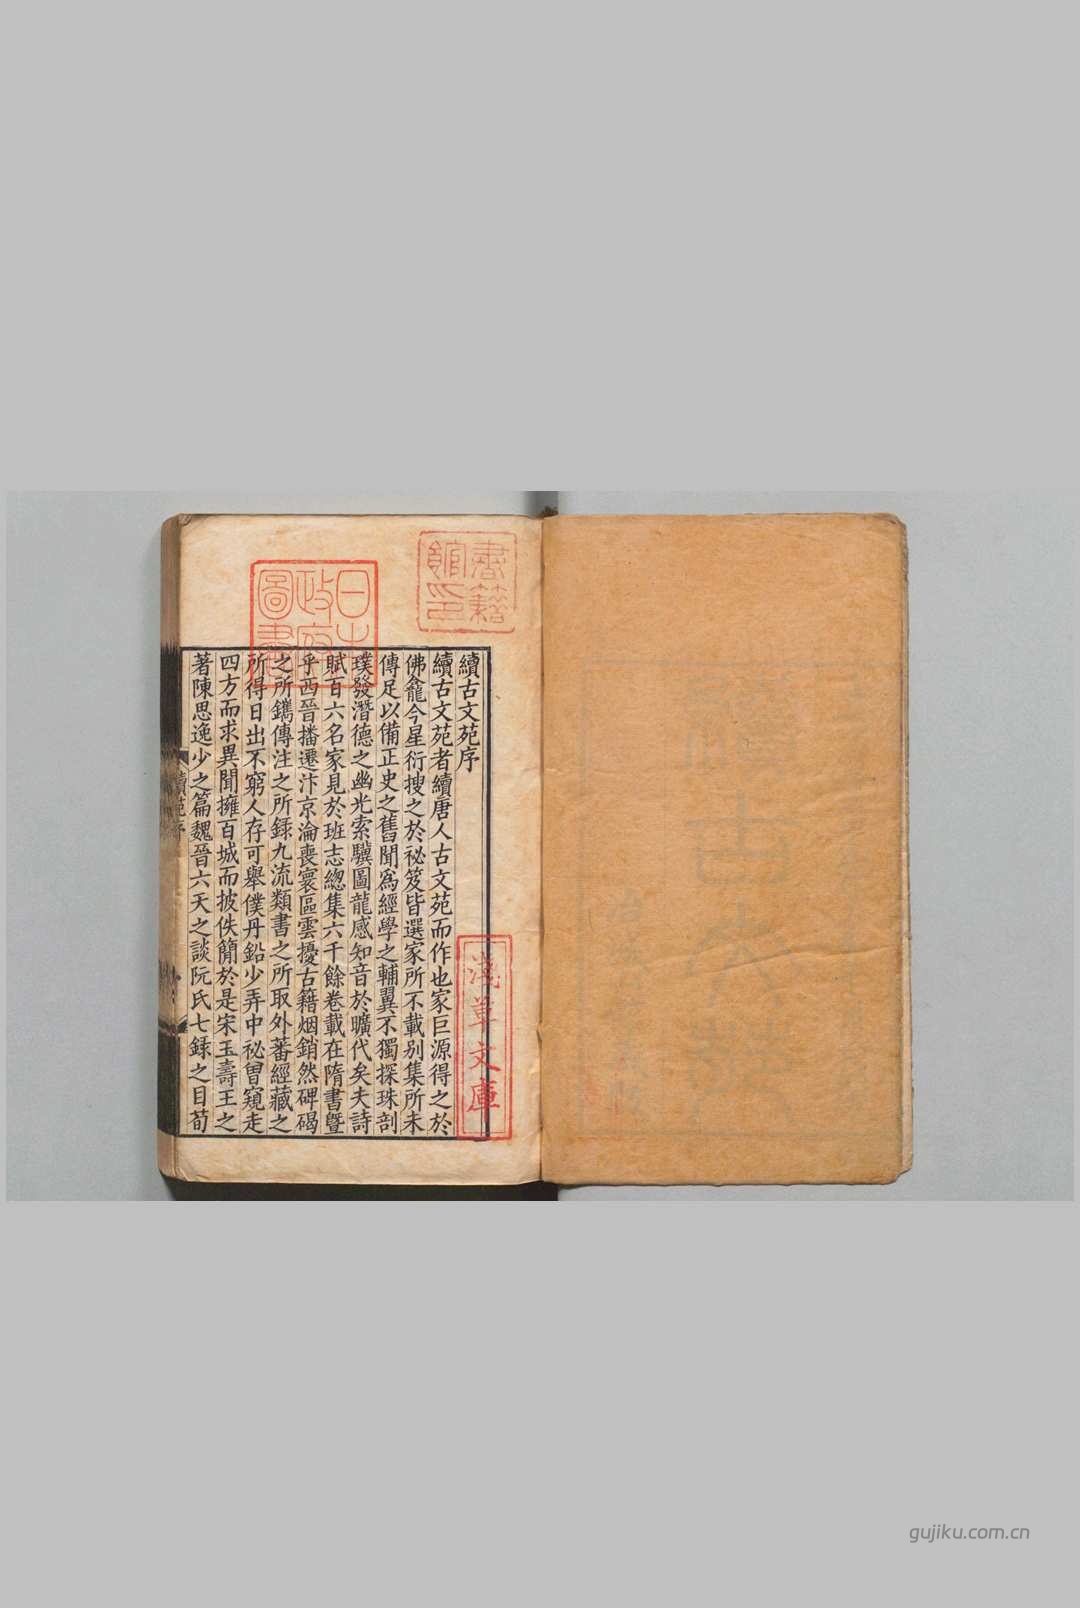 續古文苑序
續古文苑者續唐人古文苑而作也家巨源得之於
佛龕今星衍搜之於祕笈皆選家所不載別集所未
傳足以備正史之舊聞爲經學之輔翼不獨探珠剖
璞發潛德之幽光索驥圖龍感知音於曠代矣夫詩
賦百六名家見於班志總集六千餘卷載在隋書曁
乎西晉播遷汴京淪喪寰區雲擾古籍烟銷然碑碣
之所鐫傳注之所録九流類書之所取外蕃經藏之
所得日出不窮人存可舉僕丹鉛少弄中祕曾窺走
四方而求異聞擁百城而披佚簡於是宋玉壽王之
著陳思逸少之篇魏晉六天之談阮氏七録之目荀
續苑序
書籍館印
日本政府圖書
淺草文庫
gujiku.com.cn